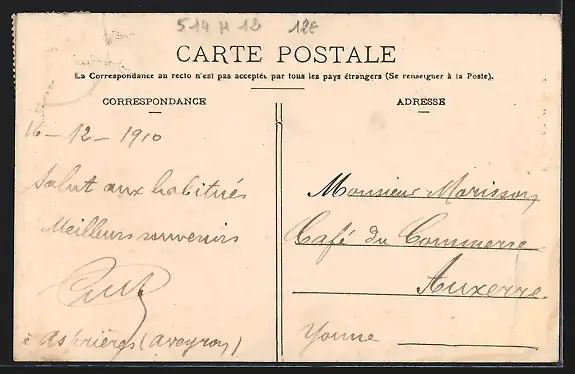 514 H 12 12E
CARTE POSTALE
La Correspondance au recto n'est pas acceptée par tous les pays étrangers (Se renseigner à la Poste).
CORRESPONDANCE
16-12-1910
Salut aux habitués
Meilleurs souvenirs
à Asprières (Aveyron)
ADRESSE
Monsieur Morisson
Café du Commerce
Auxerre
Yonne